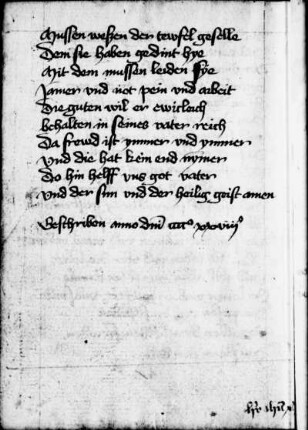 Mussen weßen der tewfel geselle
Dem sie haben gedint hye
Mit dem mussen leiden sye
Jamer und not pein und arbeit
Die guten wil er ewicleich
behalten in seines vater reich
Da frewd ist ymmer und ymmer
Und die hat kein end nymer
Do hin helff uns got vater
Und der sun und der heilig geist amen
Geschriben anno dm̄ cccc° xxxviii°